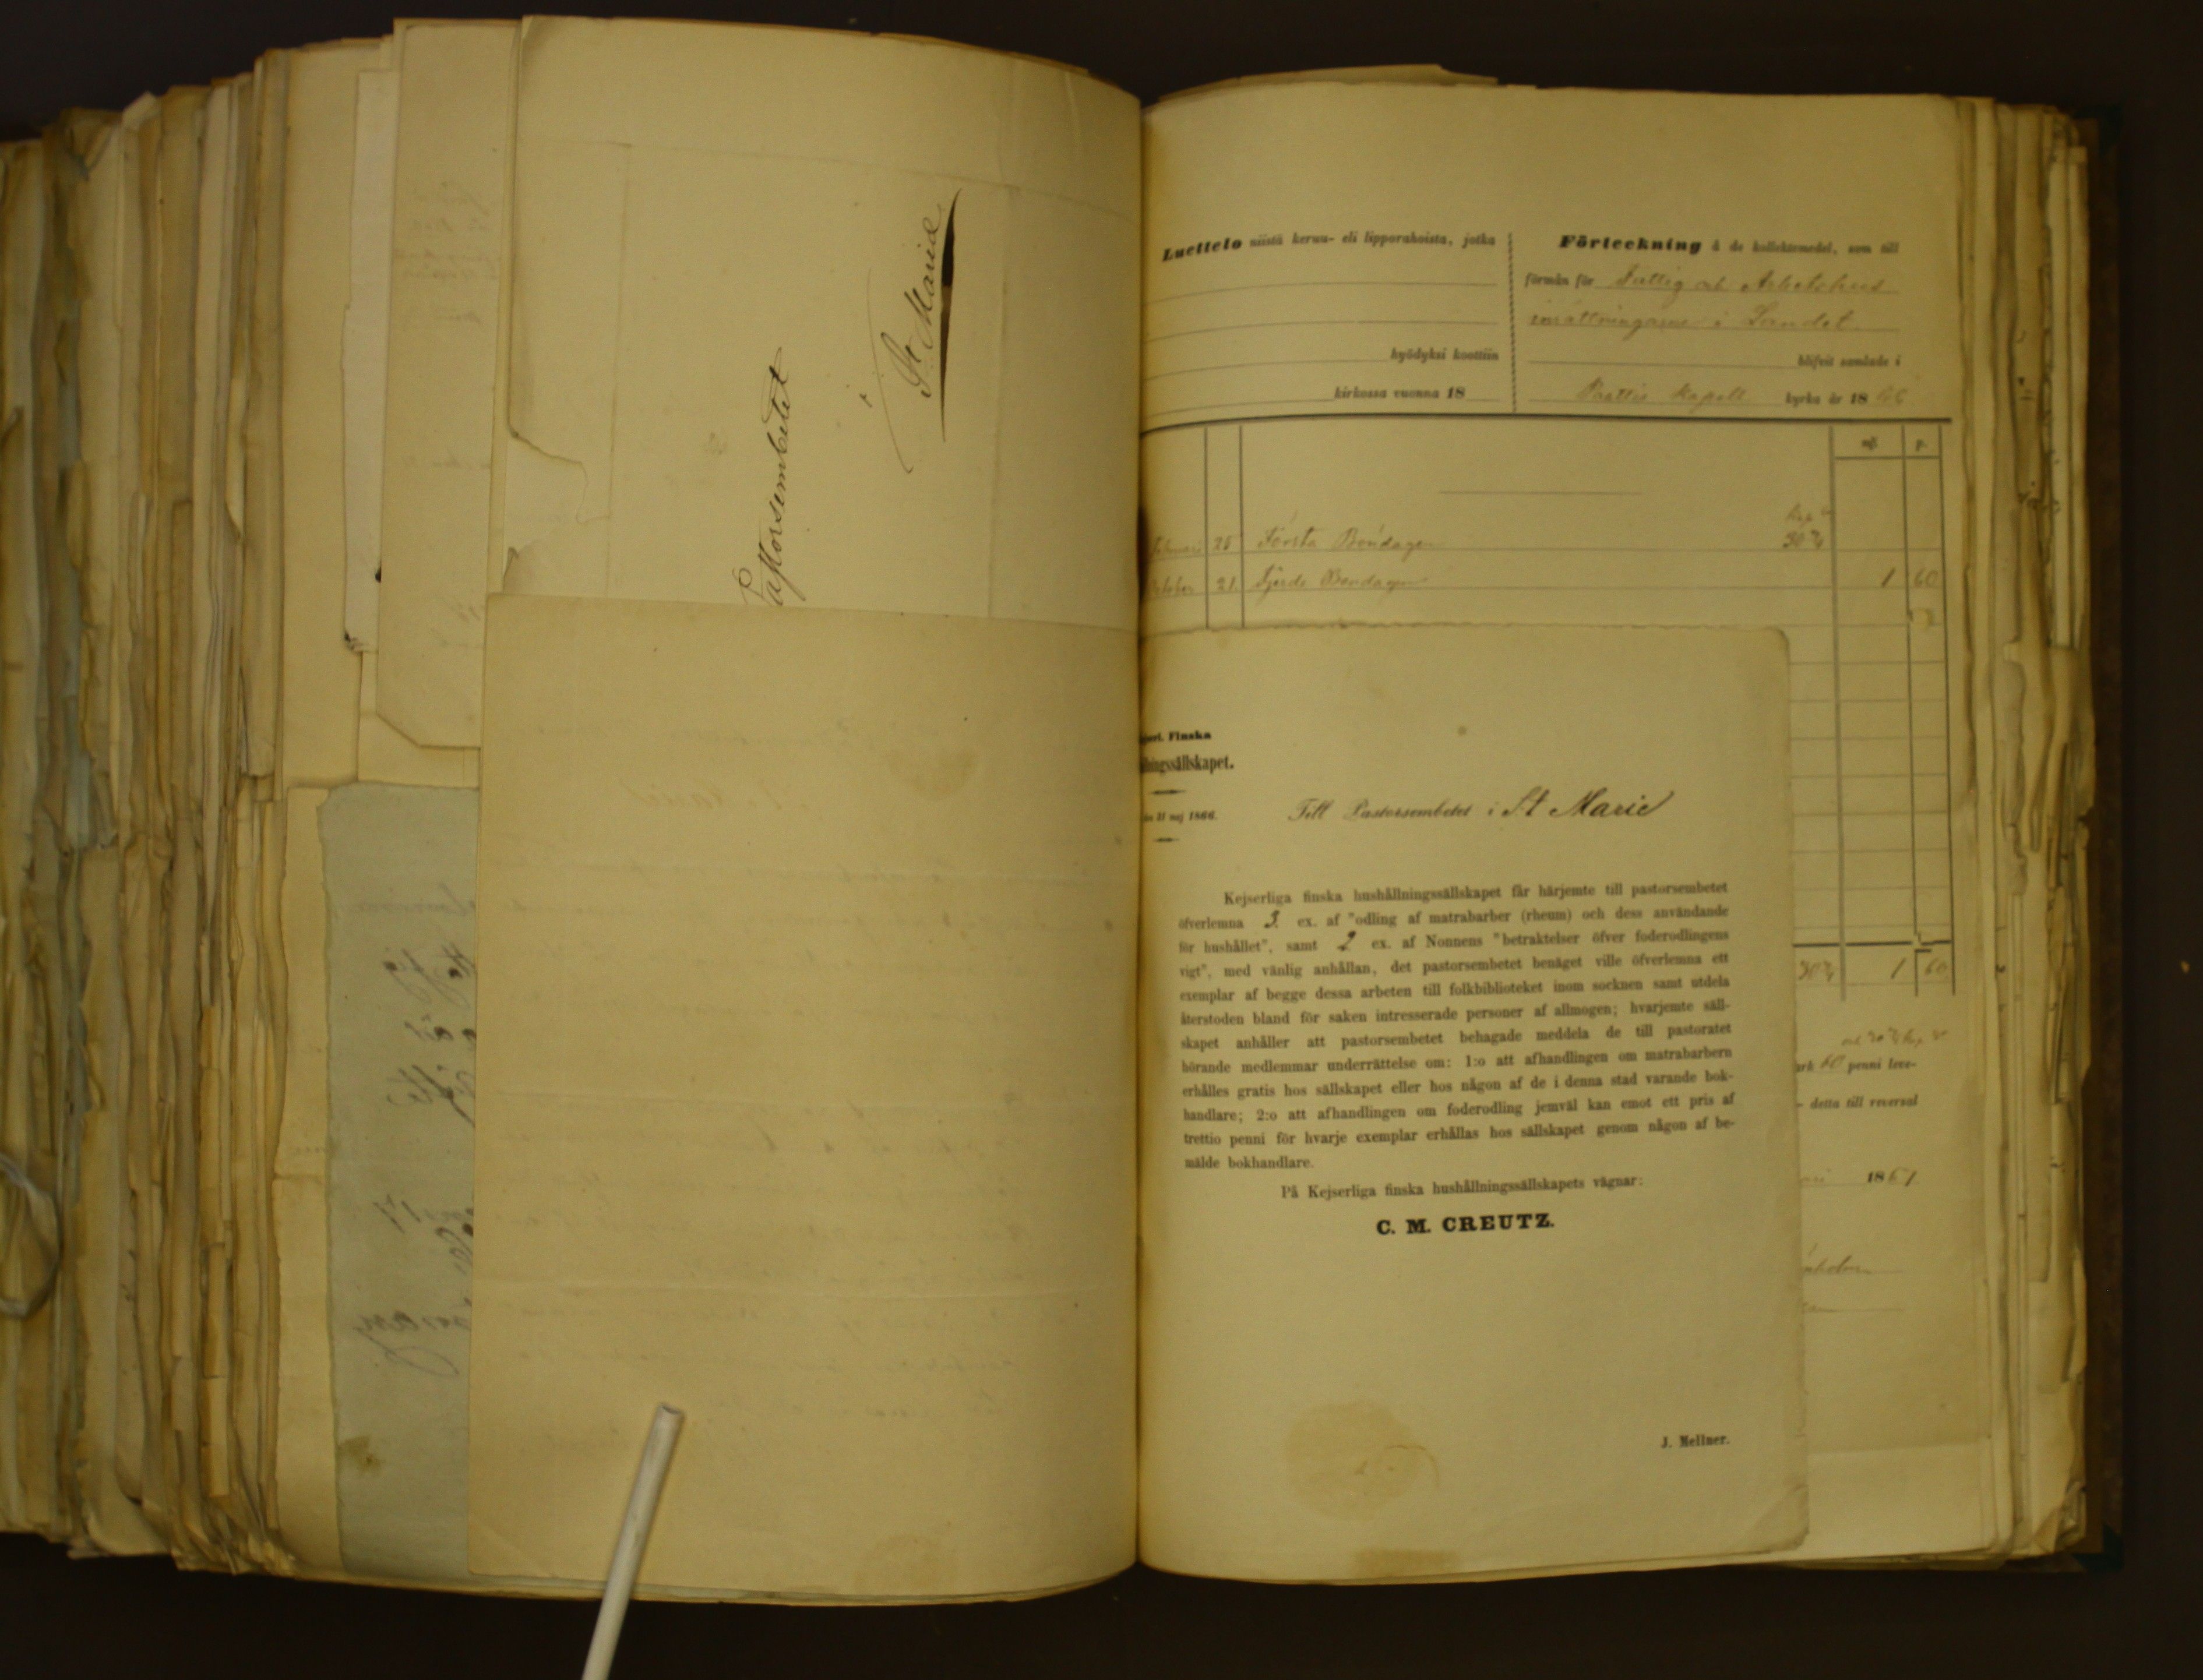 Pastorsembetet
i
St Marie
Luettelo niistä keruu- eli lipporahoista, jotka
hyödyksi koottiin
kirkossa vuonna 18
Förteckning å de kollektmedel, som till
förmån för Fattig och Arbetshus
inrättningarne i Landet
blifvit samlade i
Paattis Kapell kyrka år 1866
mk p.
Februari 25 Första Böndagen 30 3/4
October 21. Fjerde Böndagen 1 60
30 3/4 1 60
60 penni leve-
detta till reversal
1867
Finska
ningssällskapet.
31 maj 1866.
Till Pastorsembetet i St Marie
Kejserliga finska hushållningssällskapet får härjemte till pastorsembetet
öfverlemna 3 ex. af "odling af matrabarber (rheum) och dess användande
för hushållet", samt 2 ex. af Nonnens "betraktelser öfver foderodlingens
vigt", med vänlig anhållan, det pastorsembetet benäget ville öfverlemna ett
exemplar af begge dessa arbeten till folkbiblioteket inom socknen samt utdela
återstoden bland för saken intresserade personer af allmogen; hvarjemte säll-
skapet anhåller att pastorsembetet behagade meddela de till pastoratet
hörande medlemmar underrättelse om: 1:o att afhandlingen om matrabarbern
erhålles gratis hos sällskapet eller hos någon af de i denna stad varande bok-
handlare; 2:o att afhandlingen om foderodling jemväl kan emot ett pris af
trettio penni för hvarje exemplar erhållas hos sällskapet genom någon af be-
mälde bokhandlare.
På Kejserliga finska hushållningssällskapets vägnar:
C. M. CREUTZ.
J. Mellner.